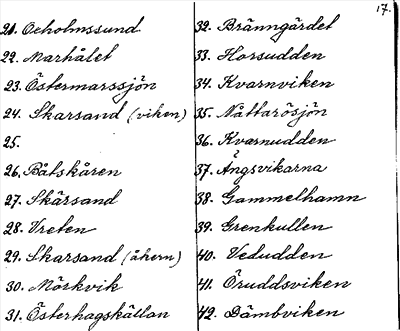 17.
21. Oxholmssund
22. Marhålet
23. Östermarssjön
24. Skarsand (viken)
25.
26. Båtskåren
27. Skärsand
28. Vreten
29. Skarsand (åkern)
30. Mörkvik
31. Österhagskällan
32. Bränngärdet
33. Horsudden
34. Kvarnviken
35. Nåttarösjön
36. Kvarnudden
37. Ängsvikarna
38. Gammelhamn
39. Grenkullen
40. Vedudden
41. Öruddsviken
42. Dämbviken